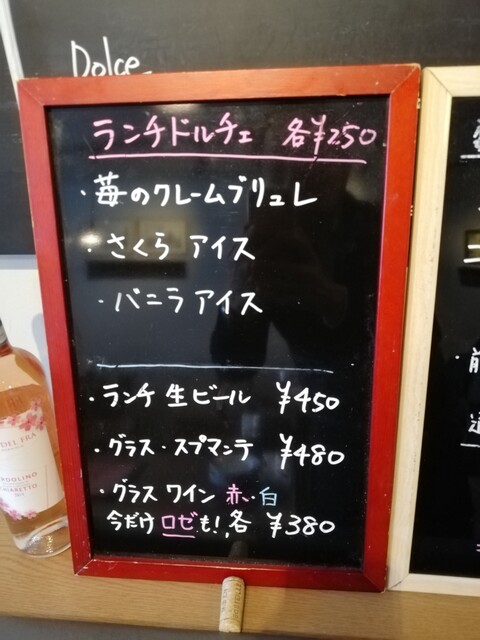 Dolce
ランチドルチェ 各¥250
・苺のクレームブリュレ
・さくら アイス
・バニラアイス
・ランチ 生ビール ¥450
・グラス・スプマンテ ¥480
・グラス ワイン 赤・白
今だけ ロゼも!, 各 ¥380
DEL FRA
CHIARETTO